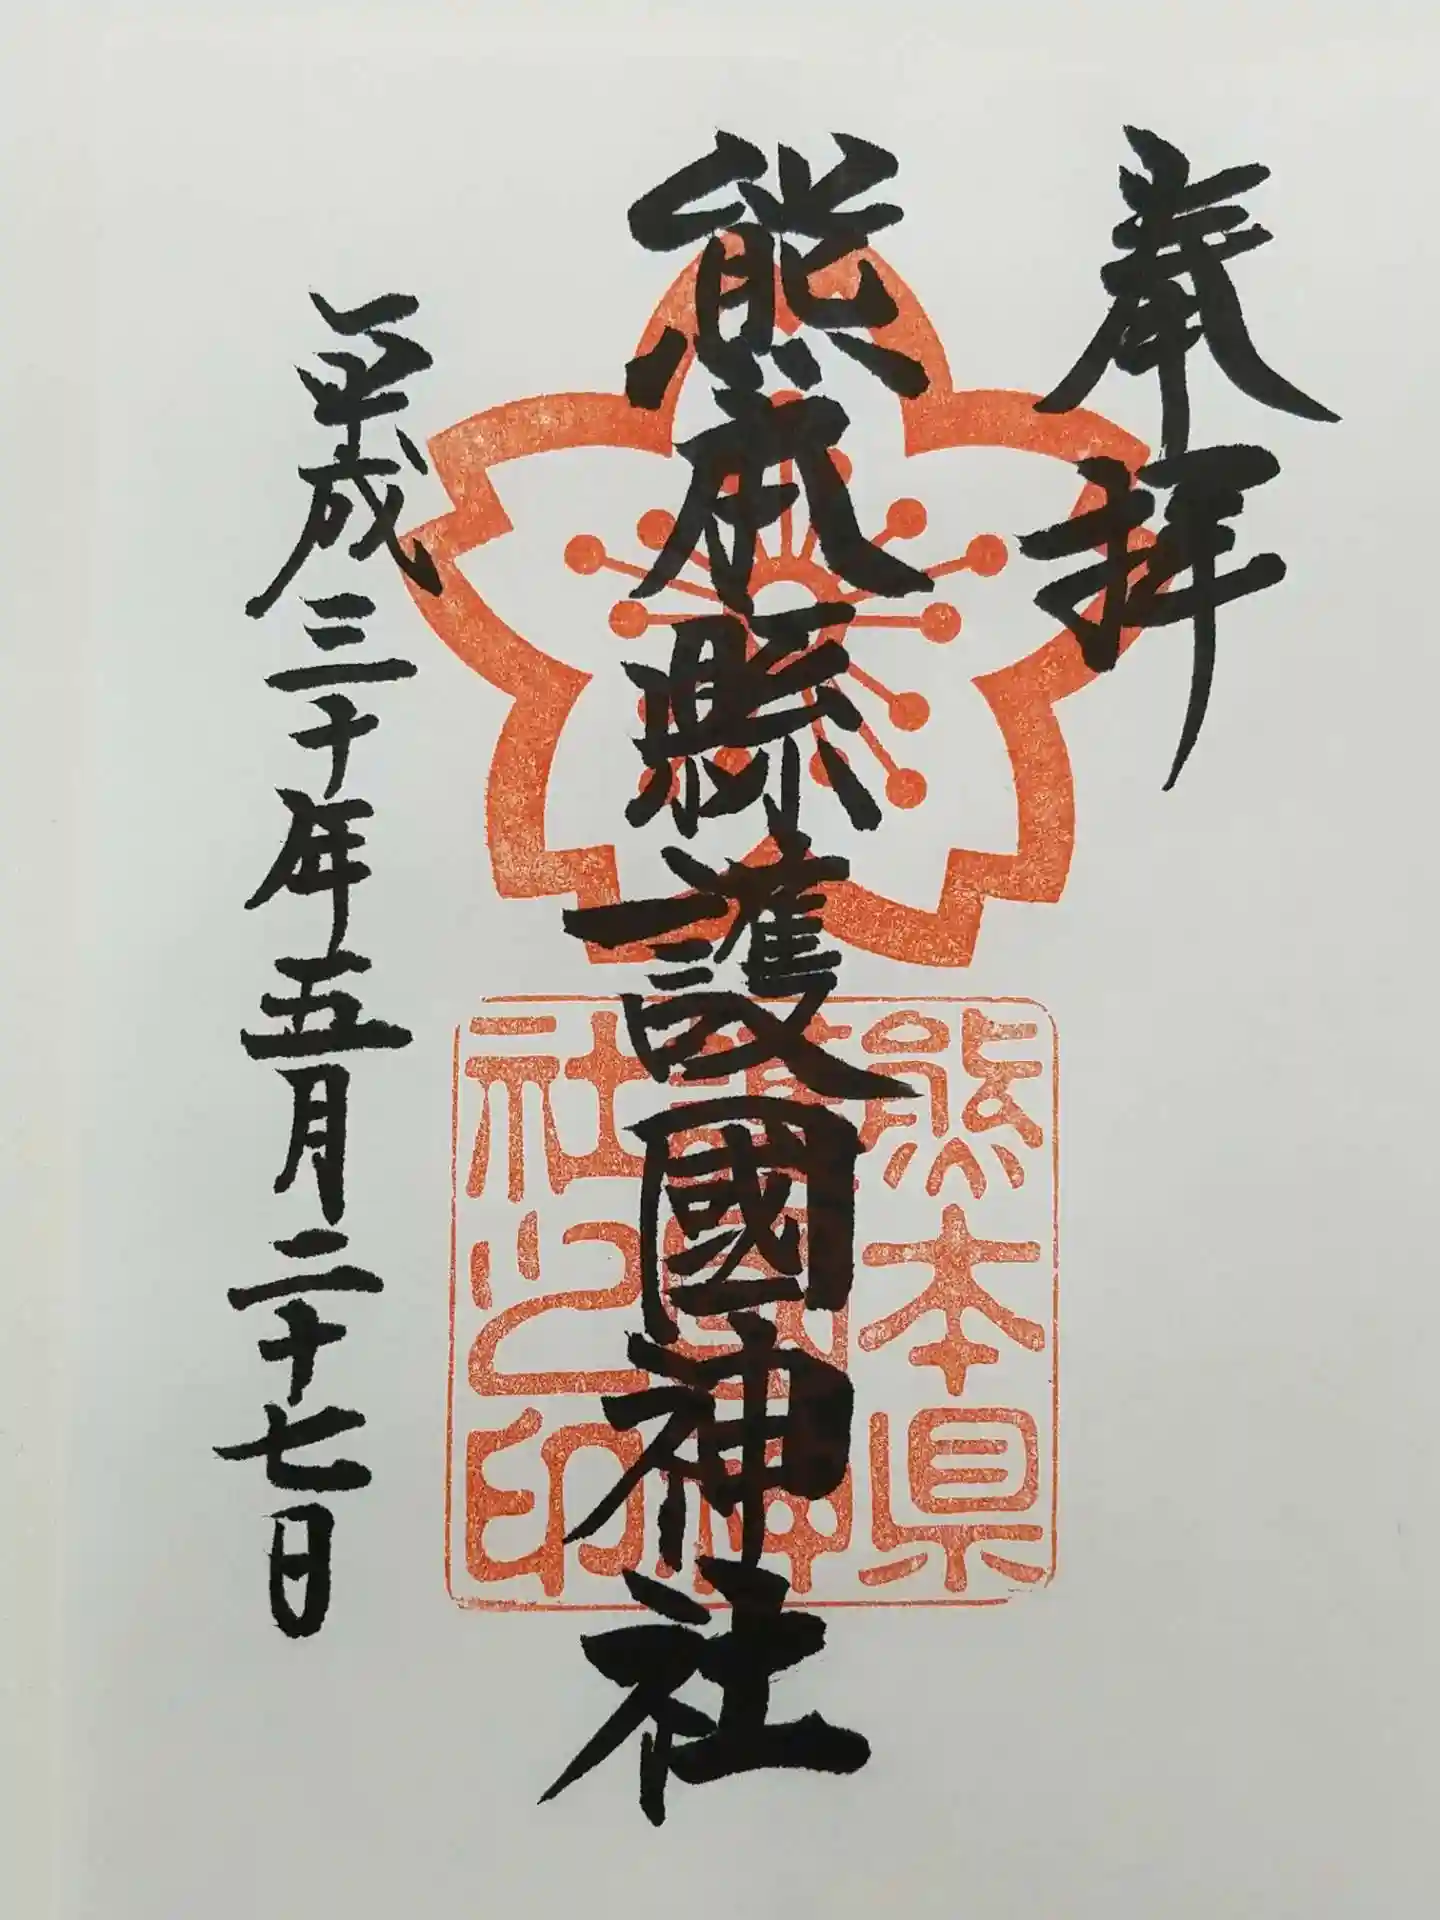 奉拝
熊本縣護國神社
平成三十年五月二十七日
熊本県
護国神
社之印